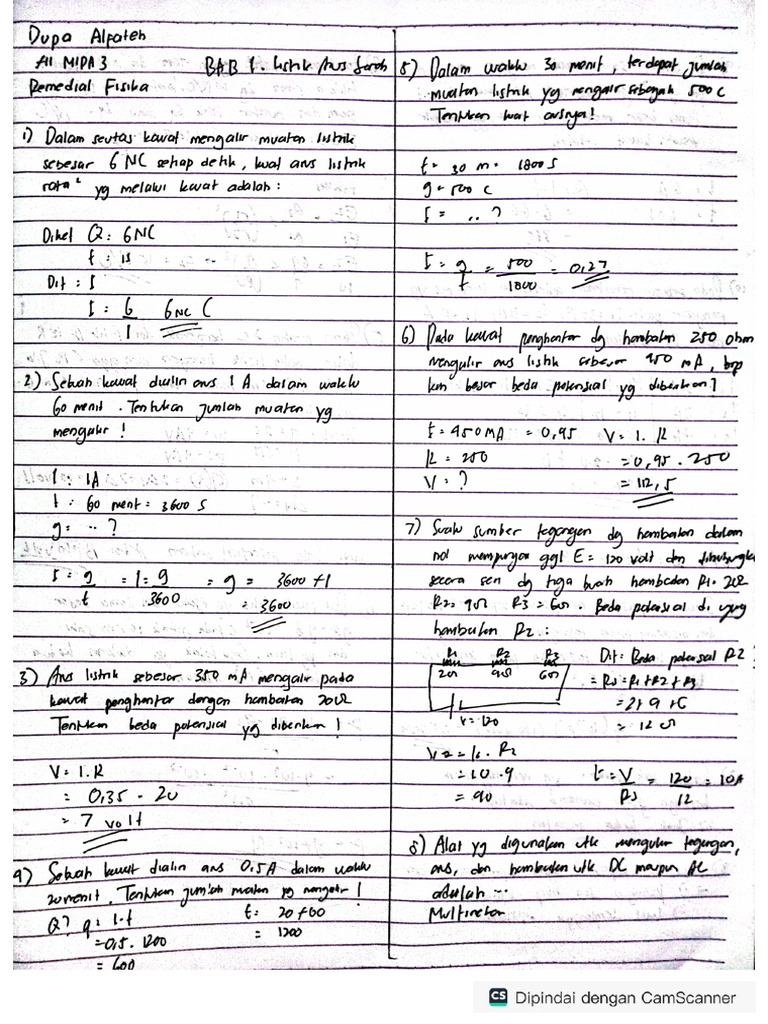 Dupa Alpateh
XII MIPA 3
BAB 1. listrik Arus Searah
Remedial Fisika
1) Dalam seutas kawat mengalir muatan listrik
sebesar 6 NC setiap detik, kuat arus listrik
rata² yg melalui kawat adalah :
Diket Q : 6 NC
t : 1s
Dit : I
I : 6/1 6 NC C
2) Sebuah kawat dialiri arus 1 A dalam waktu
60 menit . Tentukan jumlah muatan yg
mengalir !
I : 1A
t : 60 menit = 3600 s
q : .. ?
I = q/t = 1 = q/3600 = q = 3600 × 1
= 3600
3) Arus listrik sebesar 350 mA mengalir pada
kawat penghantar dengan hambatan 20Ω
Tentukan beda potensial yg diberikan !
V = I . R
= 0,35 . 20
= 7 volt
4) Sebuah kawat dialiri arus 0,5 A dalam waktu
20 menit . Tentukan jumlah muatan yg mengalir !
Q? q = I . t t = 20 × 60
= 0,5 . 1200 = 1200
= 600
5) Dalam waktu 30 menit , terdapat jumlah
muatan listrik yg mengalir sebanyak 500 C
Tentukan kuat arusnya !
t = 30 m = 1800 s
q = 500 C
I = .. ?
I = q/t = 500/1800 = 0,27
6) Pada kawat penghantar dg hambatan 250 ohm
mengalir arus listrik sebesar 450 mA, brp
kan besar beda potensial yg diberikan ?
I = 450 MA = 0,45 V = I . R
R = 250 = 0,45 . 250
V = ? = 112,5
7) Suatu sumber tegangan dg hambatan dalam
nol mempunyai ggl E = 120 volt dan dihubungkan
secara seri dg tiga buah hambatan R1 = 2Ω
R2 = 9Ω R3 = 6Ω . Beda potensial di ujung
hambatan R2 :
R1 R2 R3 Dit : Beda potensial R2
2Ω 9Ω 6Ω = Rs = R1 + R2 + R3
= 2 + 9 + 6
V = 120 = 12 Ω
V2 = I . R2
= 10 . 9 I = V/Rs = 120/12 = 10A
= 90
8) Alat yg digunakan utk mengukur tegangan,
arus, dan hambatan utk DC maupun AC
adalah ...
Multimeter
CS Dipindai dengan CamScanner